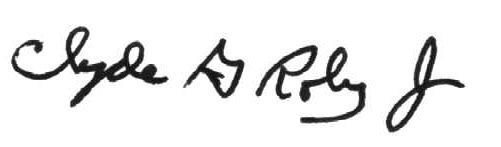 Clyde G Roby Jr